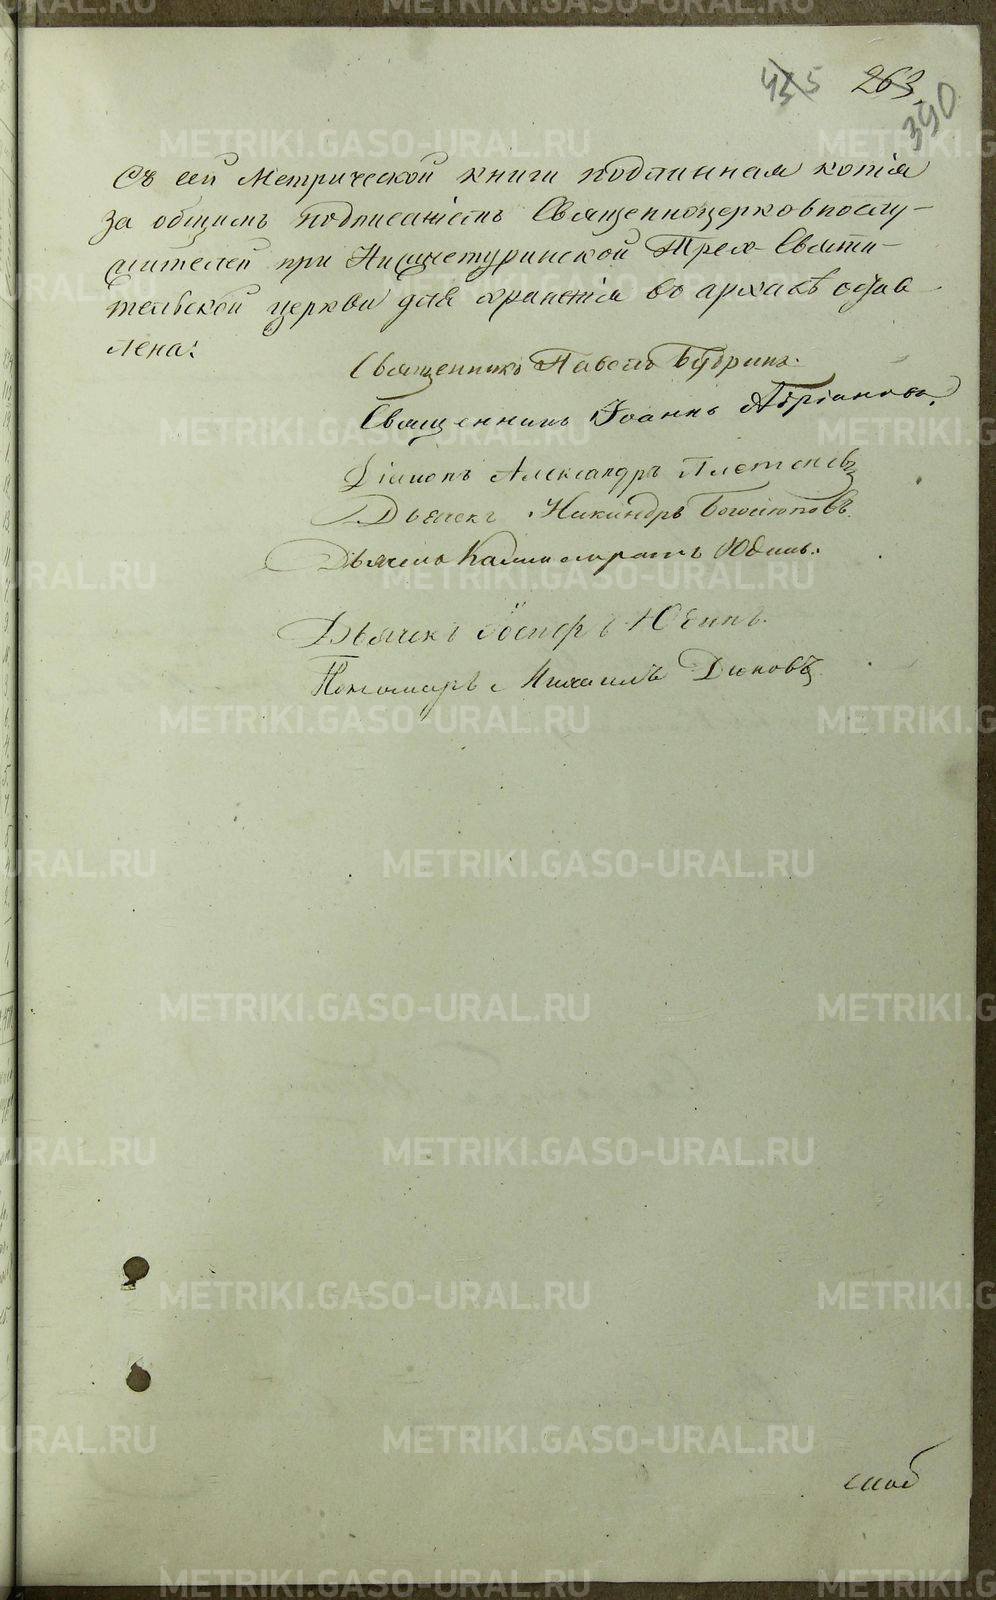 455 263
390
Съ сей Метрической книги подлинная копія
за общимъ подписаніемъ Священноцерковнослу-
жителей при Нижнетуринской Трех-Святи-
тельской церкви для храненія въ архивѣ остав
лена:
Священникъ Павелъ Бубринъ.
Священникъ Іоаннъ Адріановъ.
Діаконъ Александръ Плетеневъ
Дьячекъ Никандръ Богоміоповъ
Дьячекъ Каллистратъ Юдинъ.
Дьячекъ Юдинъ.
Пономарь Михаилъ Дюковъ
METRIKI.GASO-URAL.RU